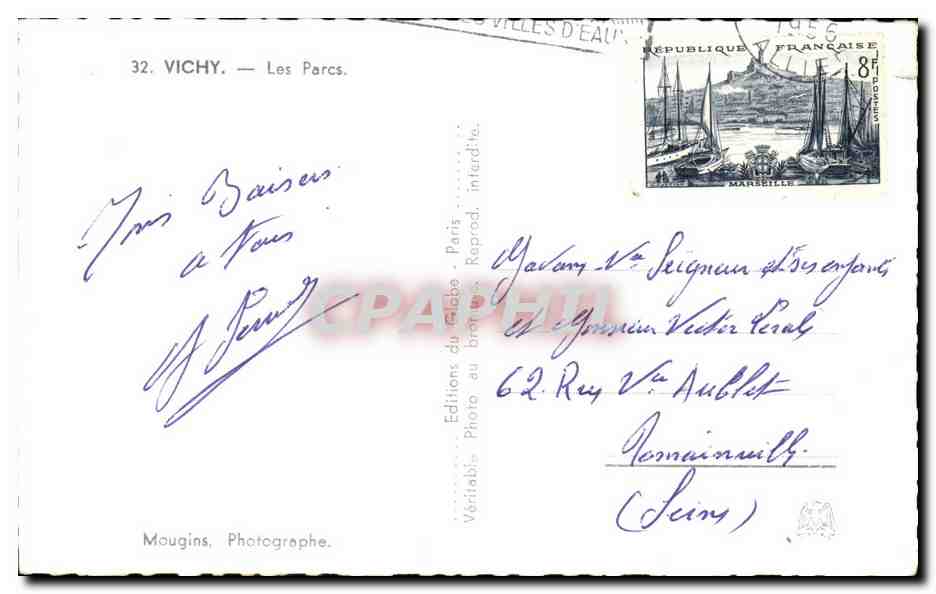 32. VICHY. — Les Parcs.
VILLES D'EAU
1956
ALLIER
RÉPUBLIQUE FRANÇAISE
8F
POSTES
MARSEILLE
Baisers
a Vous
Editions du Globe - Paris
Véritable Photo au bromure. Reprod. interdite.
CPAPHIL
Madame Vve Seigneur et Ses enfants
et Monsieur Victor
62. Rue Vve Aublet
Romainville
(Seine)
Mougins, Photographe.